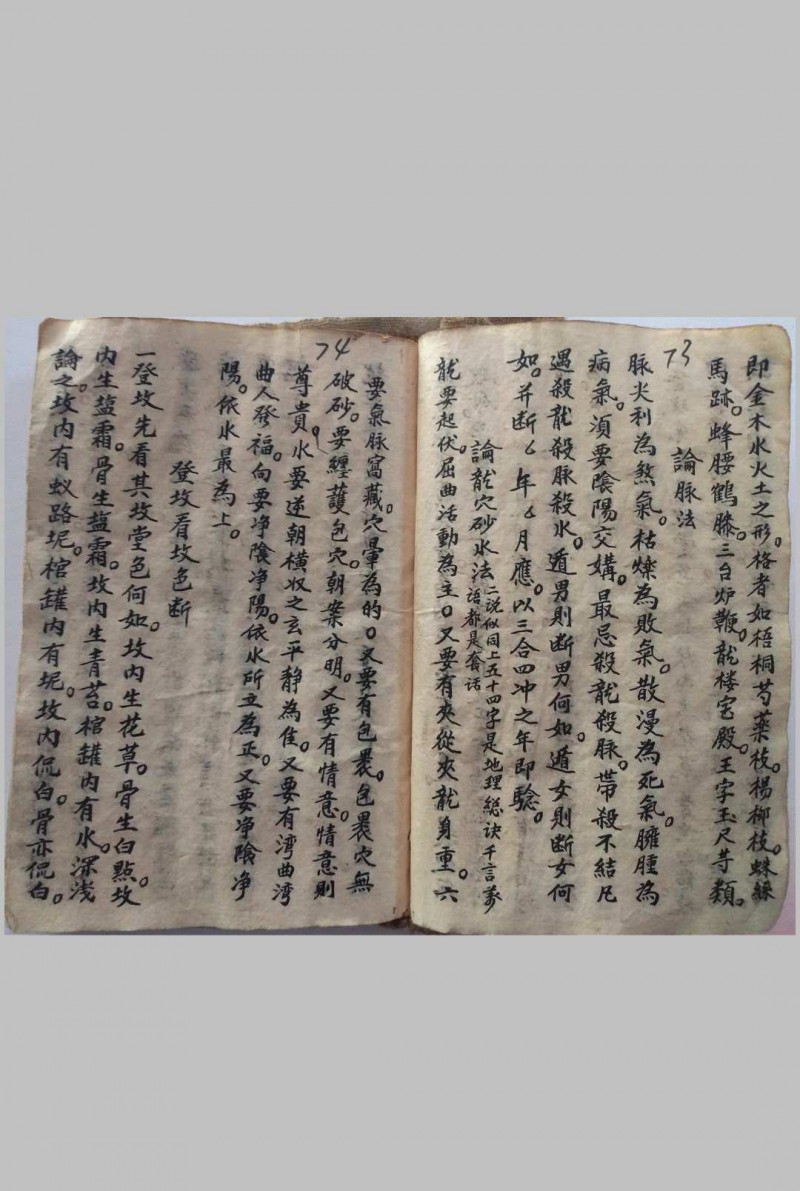 73
即金木水火土之形。格者如梧桐芍藥枝。楊柳枝。蛛絲
馬跡。蜂腰鶴膝。三台炉鞭。龍楼宝殿。王字玉尺等類。
論脉法
脉尖利為煞氣。枯燥為敗氣。散漫為死氣。臃腫為
病氣。須要陰陽交媾。最忌殺龍殺脉。帶殺不結凡
遇殺龍殺脉殺水。遁男則断男何如。遁女則断女何
如。并断厶年厶月應。以三合四冲之年即驗。
論龍穴砂水法 二説似同上五十四字是地理總訣千言萬
語都是套话
龍要起伏。屈曲活動為主。又要有夾從夾龍身重。六
74
要氣脉窩藏。穴暈為的。又要有包裹。包裹穴無
破砂。要纏護包穴。朝案分明。又要有情意。情意則
尊貴。水要逆朝橫收之玄平静為佳。又要有湾曲湾
曲人發福。向要净陰净陽。依水所立為正。又要净陰净
陽。依水最為上。
登坟看坟色断
一登坟先看其坟堂色何如。坟内生花草。骨生白點。坟
内生盐霜。骨生盐霜。坟内生青苔。棺罐内有水。深浅
論之。坟内有蚁路坭。棺罐内有坭。坟内侃白。骨亦侃白。